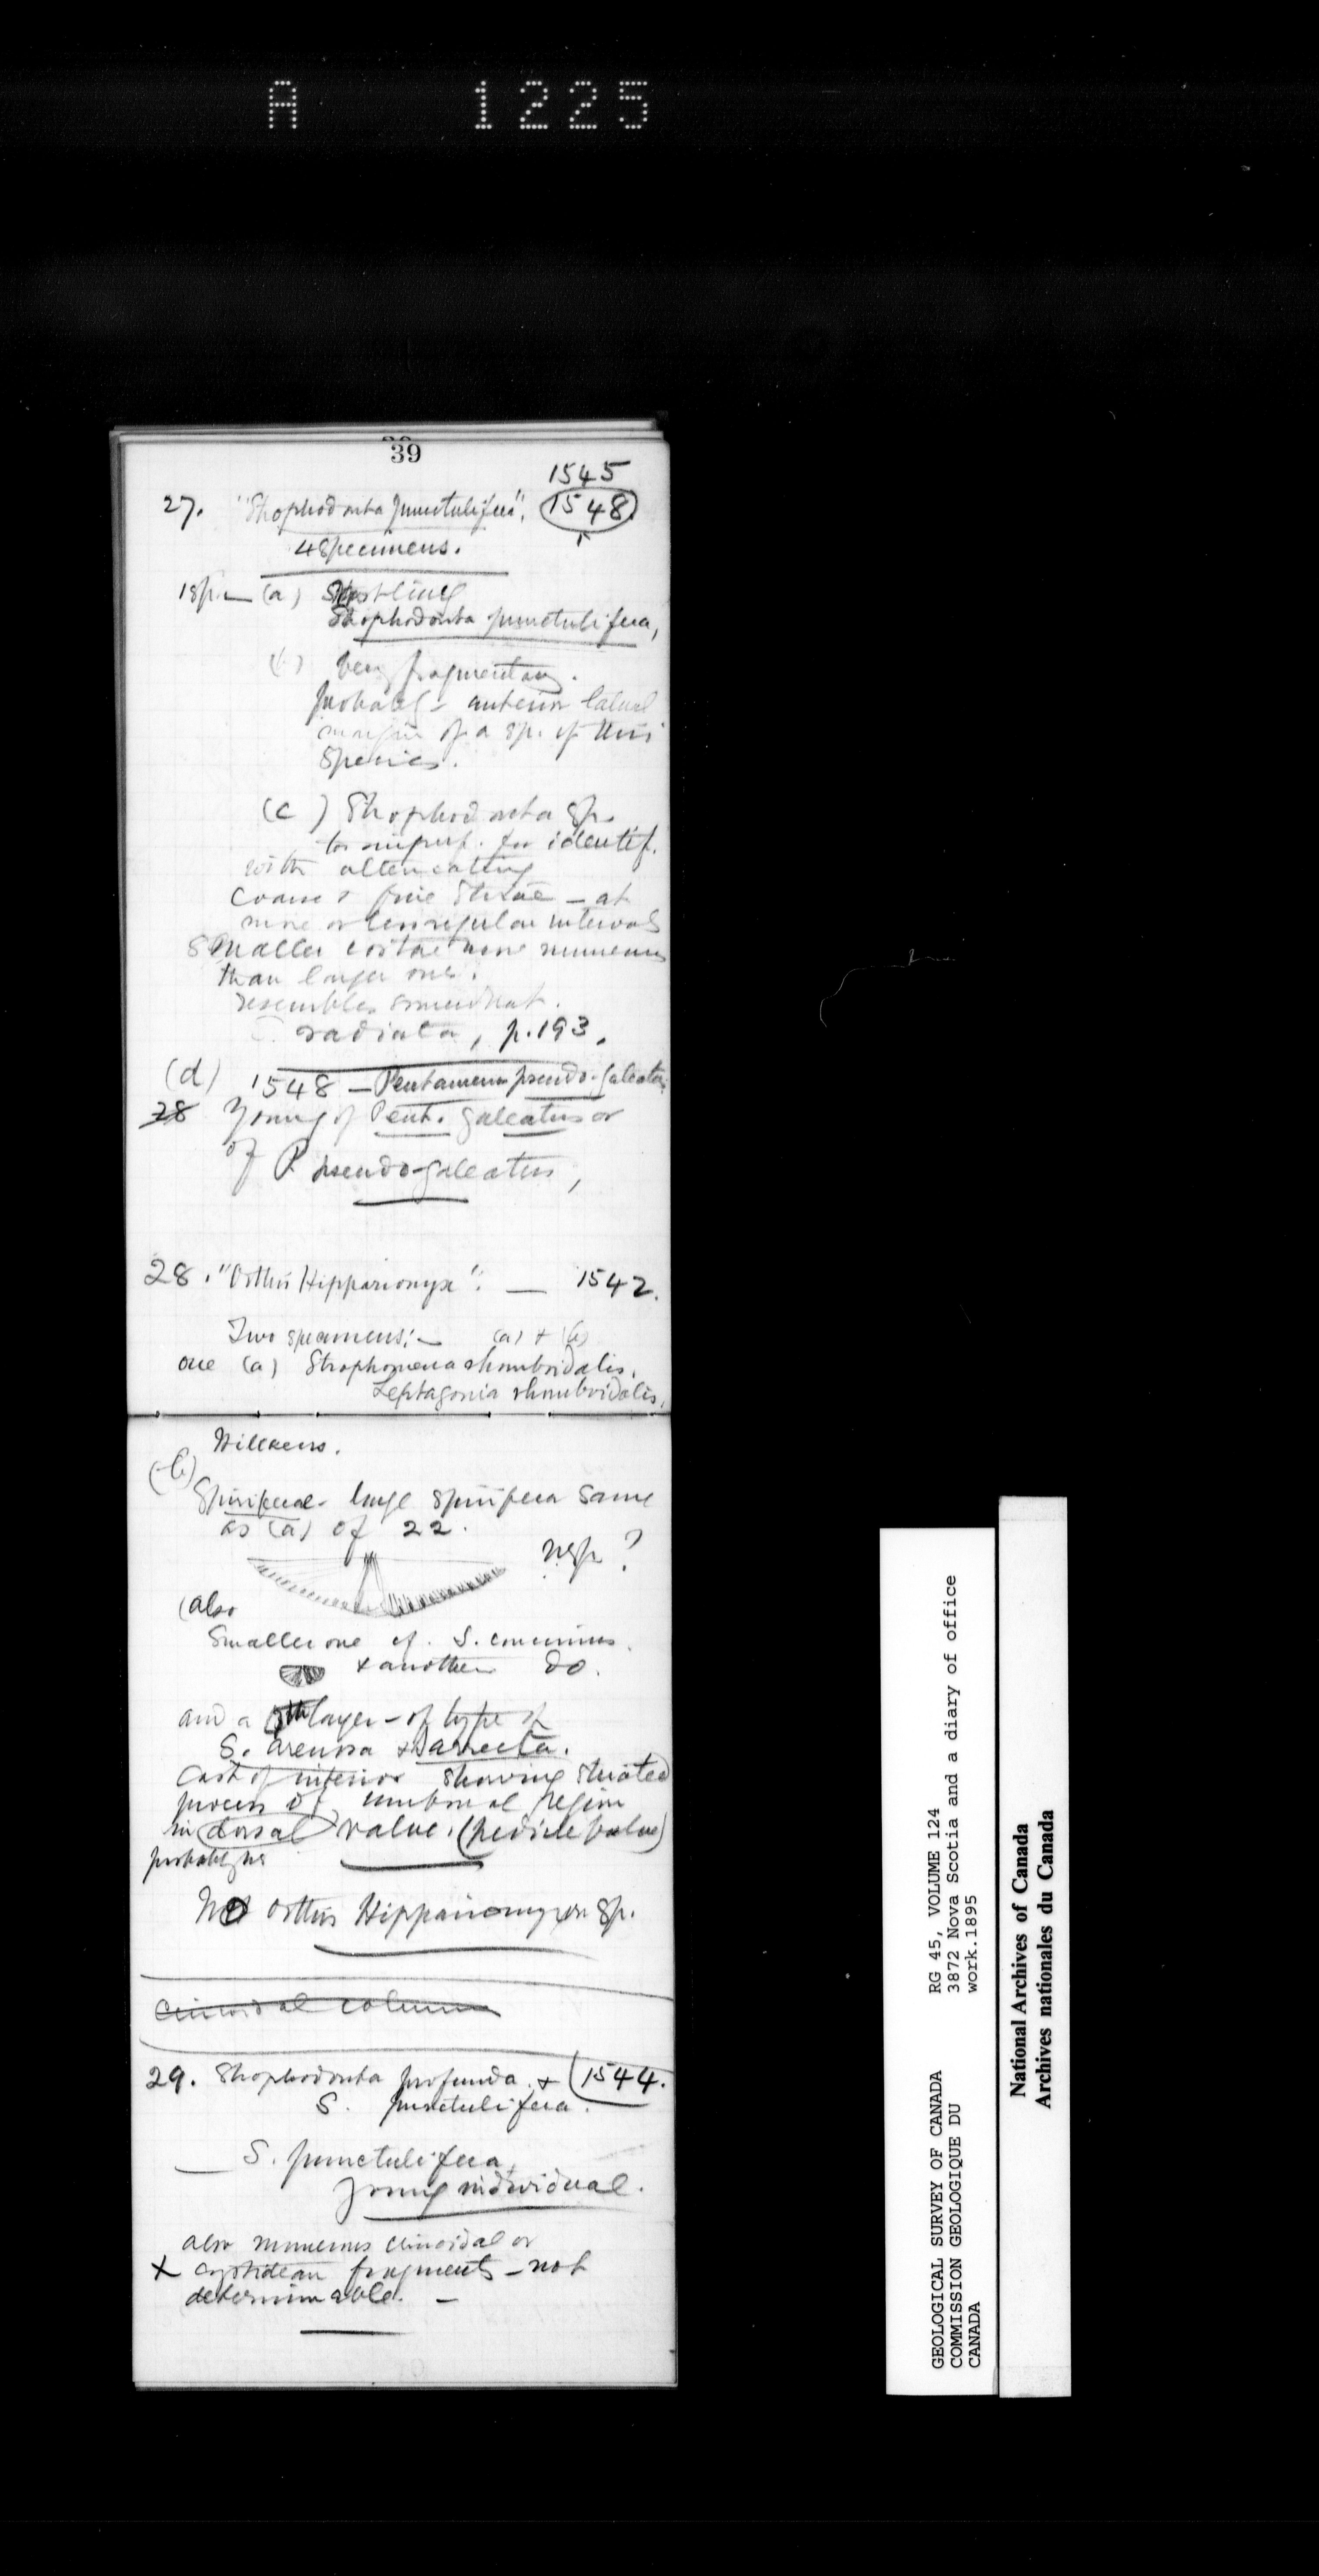 A 1225
39
1545
27. "Strophodonta punctulifera". 1548
4 specimens.
1 sp. — (a)
Strophodonta punctulifera,
(b) Very fragmentary.
probably - anterior lateral
margin of a sp. of this
species.
(c) Strophodonta sp.
too imperf. for identif.
with alternating
coarse & fine striae — at
more or less regular intervals
smaller costae more numerous
than larger ones.
resembles somewhat
radiata, p. 193.
(d) 1548 — Pentamerus pseudo-galeatus
28 Young of Pent. galeatus or
of P. pseudo-galeatus,
28. "Orthis Hipparionyx". — 1542.
Two specimens:— (a) + (b)
one (a) Strophomena rhomboidalis.
Leptagonia rhomboidalis,
Wilckens.
(b)
Spiriferae - large spirifera same
as (a) of 22.
n.sp ?
(also
Smaller one cf. S. concinnus.
+ another do.
and a larger - of type of
S. arenosa & S. arrecta.
Cast of interior showing striated
process of umbonal region
in dorsal valve. (pedicle valve)
probably
No Orthis Hipparionyx in sp.
crinoidal column
29. Strophodonta profunda. + 1544.
S. punctulifera.
— S. punctulifera,
young individual.
also numerous crinoidal or
X cystidean fragments - not
determinable. —
GEOLOGICAL SURVEY OF CANADA
COMMISSION GEOLOGIQUE DU
CANADA
RG 45, VOLUME 124
3872 Nova Scotia and a diary of office
work.1895
National Archives of Canada
Archives nationales du Canada